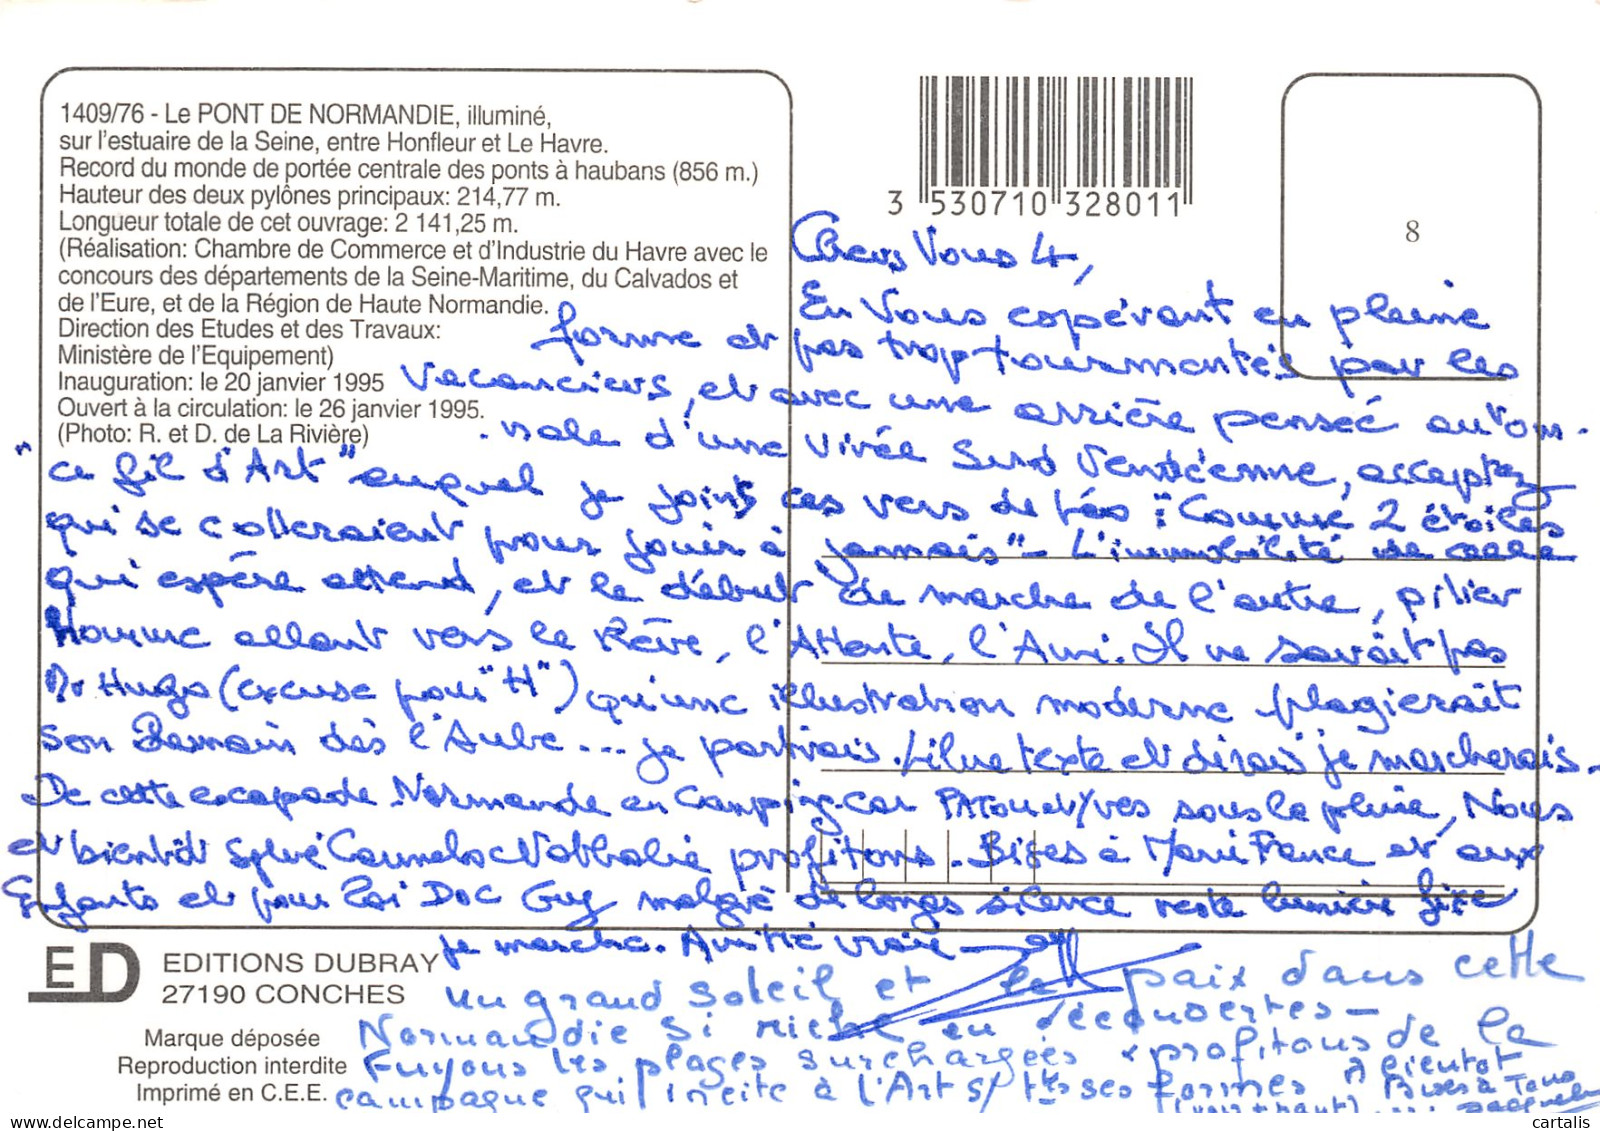 1409/76 - Le PONT DE NORMANDIE, illuminé,
sur l'estuaire de la Seine, entre Honfleur et Le Havre.
Record du monde de portée centrale des ponts à haubans (856 m.)
Hauteur des deux pylônes principaux: 214,77 m.
Longueur totale de cet ouvrage: 2 141,25 m.
(Réalisation: Chambre de Commerce et d'Industrie du Havre avec le
concours des départements de la Seine-Maritime, du Calvados et
de l'Eure, et de la Région de Haute Normandie.
Direction des Etudes et des Travaux:
Ministère de l'Equipement)
Inauguration: le 20 janvier 1995
Ouvert à la circulation: le 26 janvier 1995.
(Photo: R. et D. de La Rivière)
3 530710 328011
8
Chers Vous 4,
En Vous espérant en pleine
forme et pas trop tourmentés par les
Vacanciers, et avec une arrière pensée autom-
nale d'une virée Sud Vendéenne, acceptez
"ce fil d'Art" auquel je joins ces vers de Léo : "Comme 2 étoiles
qui se colleraient pour jouir à jamais" - L'immobilité de celle
qui espère attend, et le début de marche de l'autre, pilier
homme allant vers le Rêve, l'Attente, l'Ami. Il ne savait pas
Mr Hugo (excuse pour "H") qu'une illustration moderne plagierait
son Demain dès l'Aube... je partirais. texte et dirais je marcherais.
De cette escapade Normande en Camping-car PATOU et Yves sous la pluie, Nous
et bientôt Nathalie profitons. Bises à Marie France et aux
Enfants et pour Toi Doc Guy malgré de longs silence reste lumière fixe
je marche. Amitié vraie
un grand soleil et la paix dans cette
Normandie si riche en découvertes -
Fuyons les plages surchargées & profitons de la
campagne qui incite à l'Art s/ ttes ses formes A bientôt
Bises à Tous
(voir + haut)
ED
EDITIONS DUBRAY
27190 CONCHES
Marque déposée
Reproduction interdite
Imprimé en C.E.E.
delcampe.net
cartalis